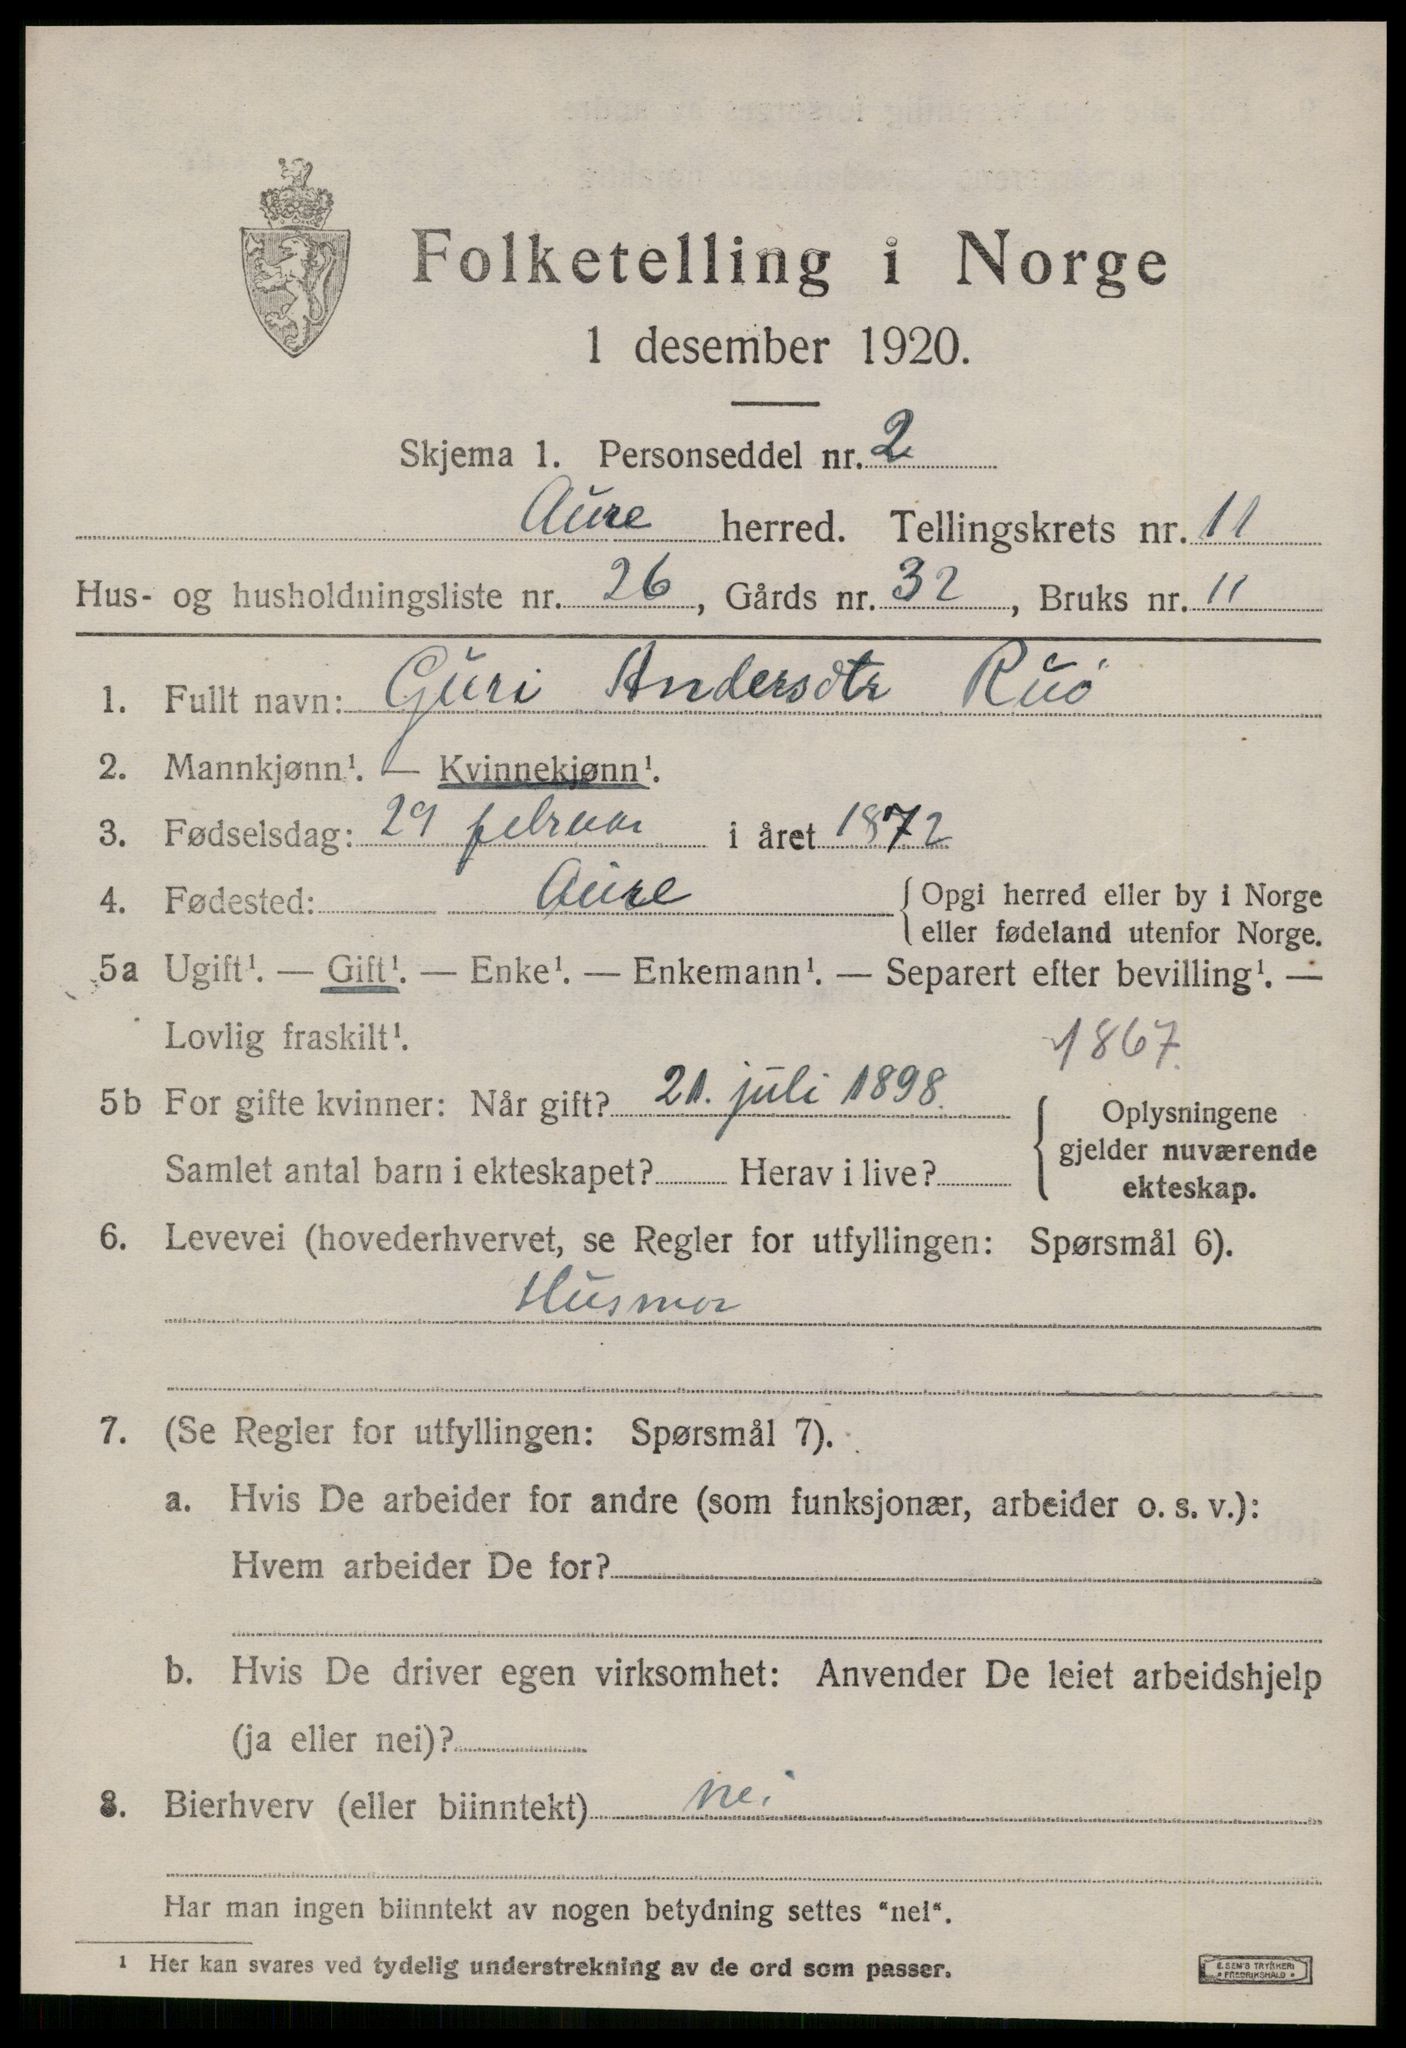 Folketelling i Norge
1 desember 1920.
Skjema 1. Personseddel nr. 2
Aure herred. Tellingskrets nr. 11
Hus- og husholdningsliste nr. 26, Gårds nr. 32, Bruks nr. 11
1. Fullt navn: Guri Andersdtr Ruö
2. Mannkjønn¹. — Kvinnekjønn¹.
3. Fødselsdag: 29 februar i året 1872
4. Fødested: Aure { Opgi herred eller by i Norge
eller fødeland utenfor Norge.
5a Ugift¹. — Gift¹. — Enke¹. — Enkemann¹. — Separert efter bevilling¹. —
Lovlig fraskilt¹. 1867.
5b For gifte kvinner: Når gift? 21. juli 1898. { Oplysningene
gjelder nuværende
Samlet antal barn i ekteskapet? Herav i live? ekteskap.
6. Levevei (hovederhvervet, se Regler for utfyllingen: Spørsmål 6).
Husmor
7. (Se Regler for utfyllingen: Spørsmål 7).
a. Hvis De arbeider for andre (som funksjonær, arbeider o. s. v.):
Hvem arbeider De for?
b. Hvis De driver egen virksomhet: Anvender De leiet arbeidshjelp
(ja eller nei)?
8. Bierhverv (eller biinntekt) nei
Har man ingen biinntekt av nogen betydning settes "nei".
¹ Her kan svares ved tydelig understrekning av de ord som passer.
E. SEM'S TRYKKERI
FREDRIKSHALD